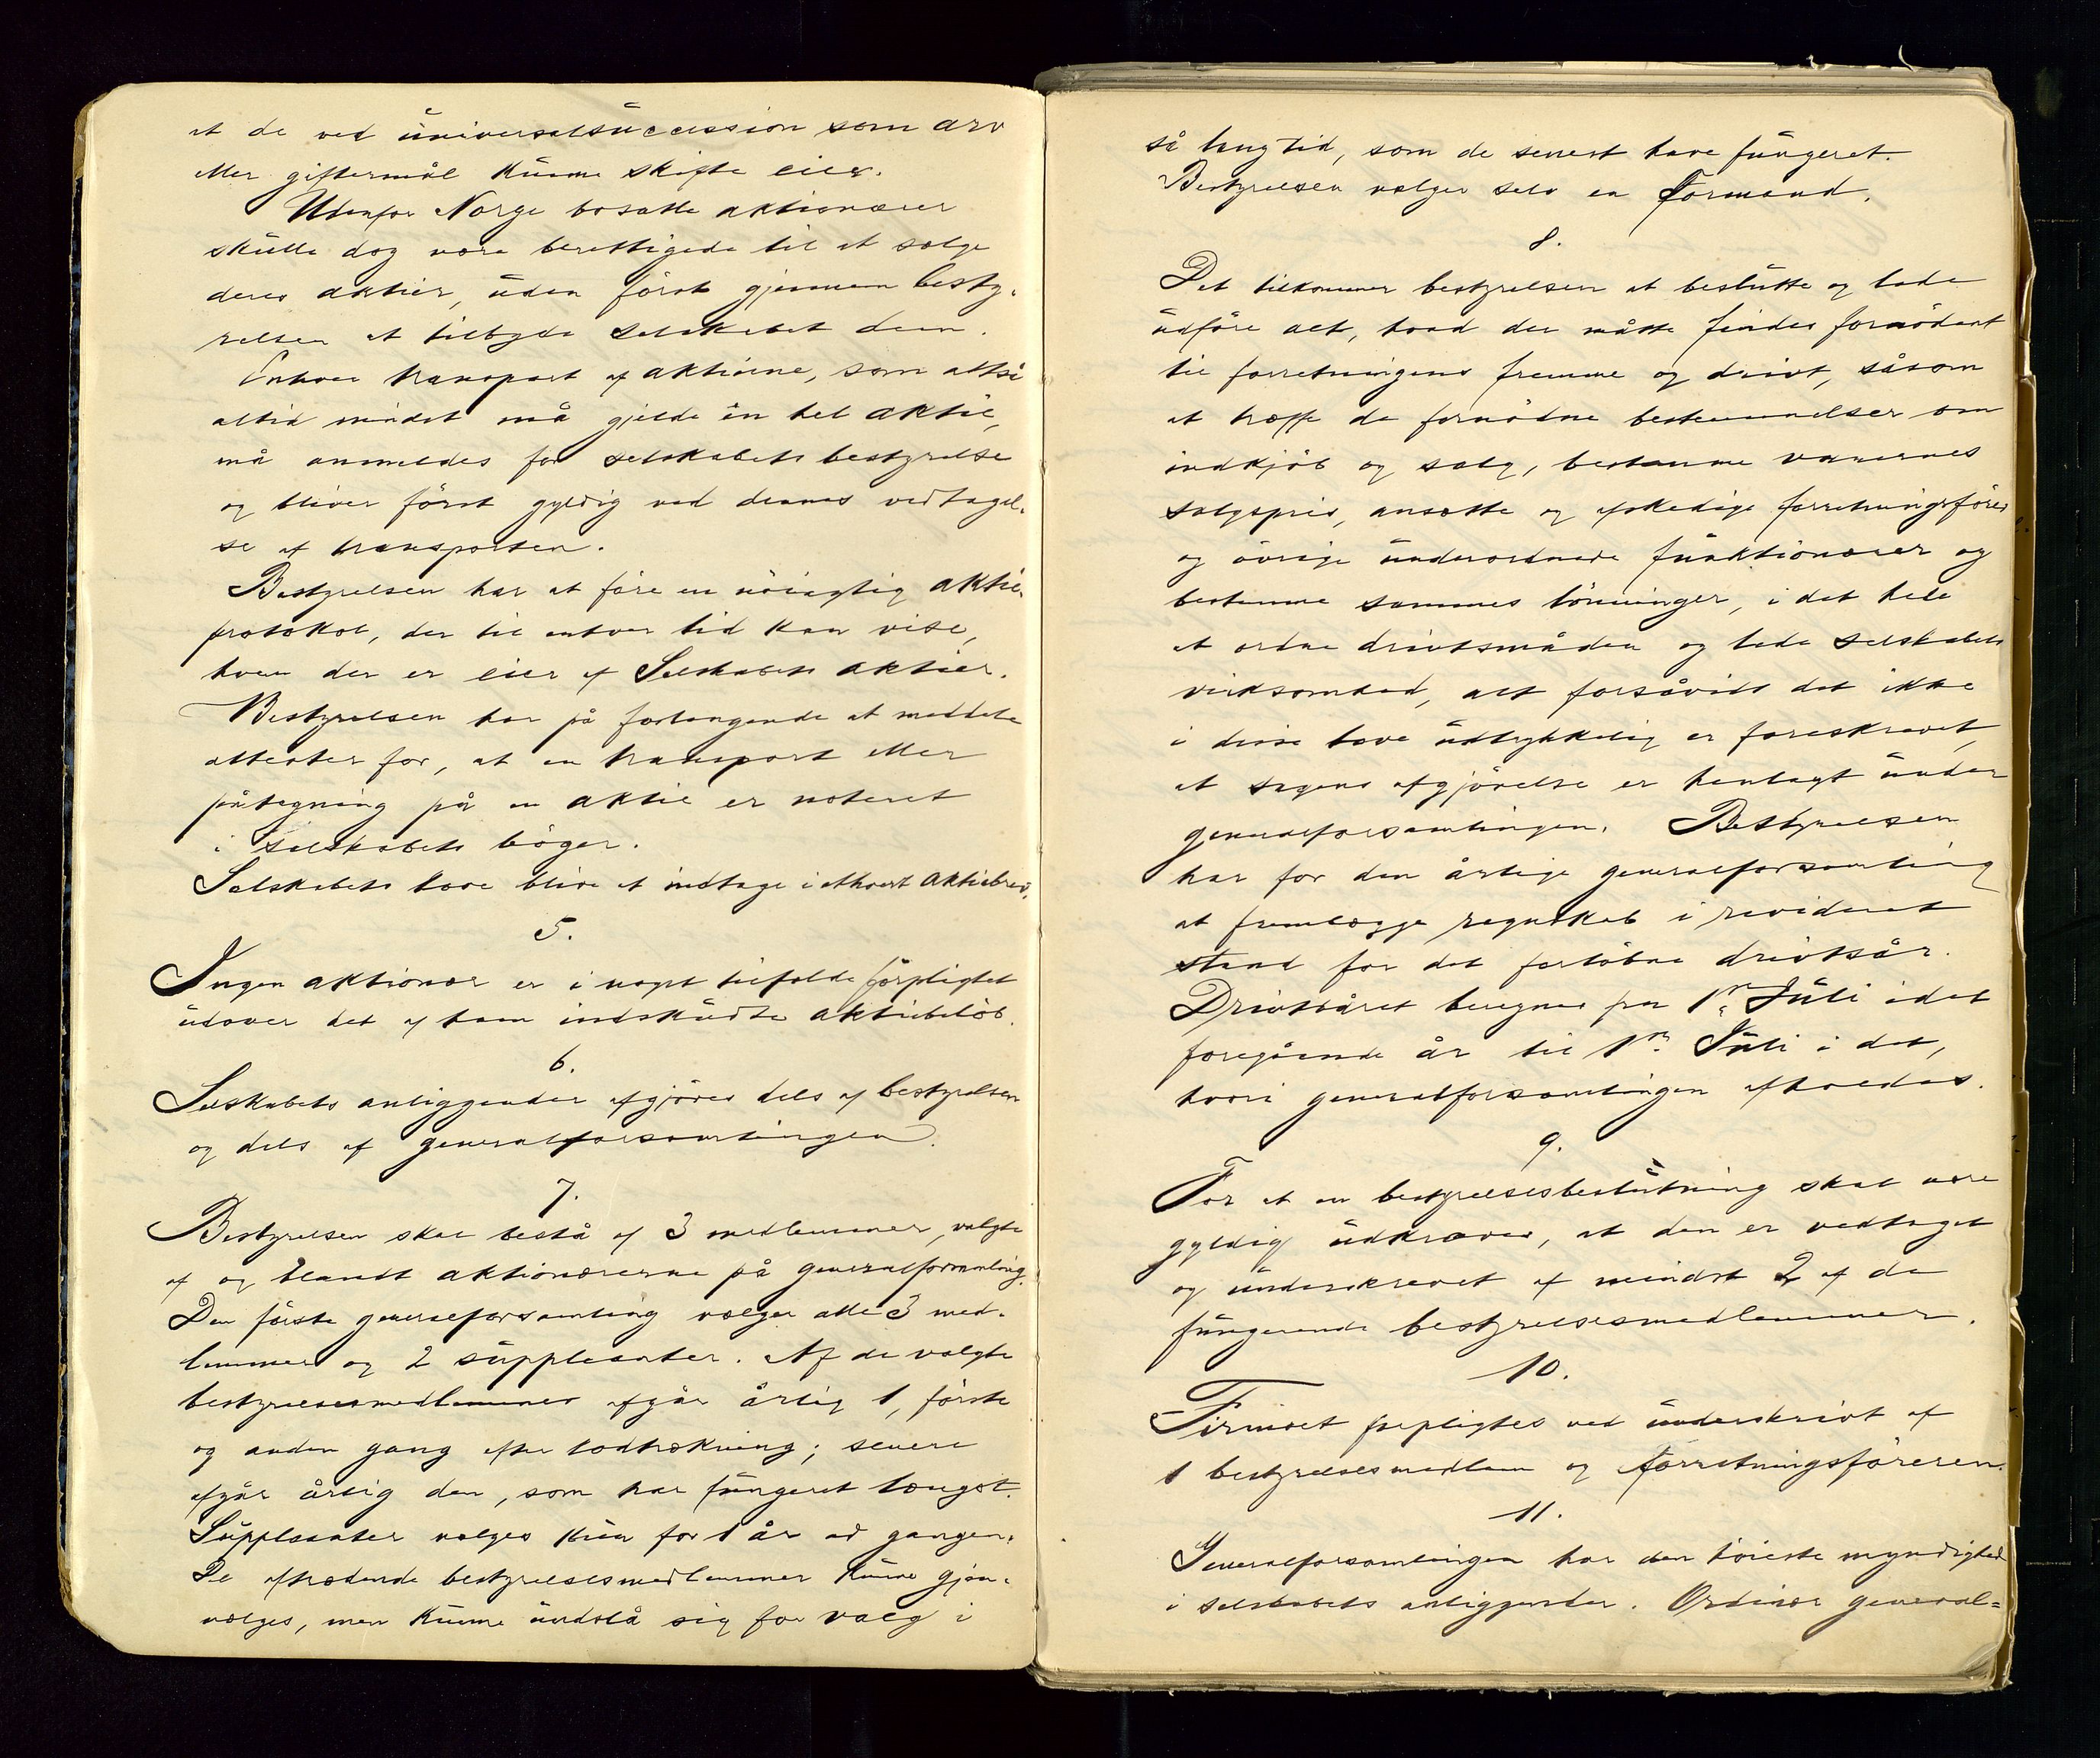 at de ved universalsuccession som arv
eller giftermål kunne skifte eier.
Udenfor Norge bosatte aktionærer
skulle dog være berettigede til at sælge
deres aktier, uden først gjennem besty-
relsen at tilbyde selskabet dem.
Enhver transport af aktierne, som altså
altid mindst må gjelde én hel aktie,
må anmeldes for selskabets bestyrelse
og bliver først gyldig ved dennes vedtagel-
se af transporten.
Bestyrelsen har at føre en nöiagtig aktie-
protokol, der til enhver tid kan vise,
hvem der er eier af Selskabets aktier.
Bestyrelsen har på forlangende at meddele
attester for, at en transport eller
påtegning på en aktie er noteret
i Selskabets bøger.
Selskabets love blive at indtage i ethvert aktiebrev.
5.
Ingen aktionær er i noget tilfælde forpligtet
udover det af ham indskudte aktiebeløb.
6.
Selskabets anliggender afgjøres dels af bestyrelsen
og dels af generalforsamlingen.
7.
Bestyrelsen skal bestå af 3 medlemmer, valgte
af og blandt aktionærerne på generalforsamling.
Den første generalforsamling vælger alle 3 med-
lemmer og 2 suppleanter. Af de valgte
bestyrelsesmedlemmer afgår årlig 1, første
og anden gang efter lodtrækning; senere
afgår årlig den, som har fungeret længst.
Suppleanter vælges kun for 1 år ad gangen.
De aftrædende bestyrelsesmedlemmer kunne gjen-
vælges, men kunne undslå sig for valg i
så lang tid, som de senest have fungeret.
Bestyrelsen vælger selv en Formand.
8.
Det tilkommer bestyrelsen at beslutte og lade
udføre alt, hvad der måtte findes fornødent
til forretningens fremme og drivt, såsom
at træffe de fornødne bestemmelser om
indkjøb og salg, bestemme varernes
salgspris, ansætte og afskedige forretningsfører
og øvrige underordnede funktionærer og
bestemme sammes lønninger, i det hele
at ordne drivtsmåden og lede selskabets
virksomhed, alt forsåvidt det ikke
i disse love udtrykkelig er foreskrevet,
at sagens afgjørelse er henlagt under
generalforsamlingen. Bestyrelsen
har for den årlige generalforsamling
at fremlægge regnskab i revideret
stand for det forløbne drivtsår.
Drivtsåret beregnes fra 1ste Juli i det
foregående år til 1ste Juli i det,
hvori generalforsamlingen afholdes.
9.
For at en bestyrelsesbeslutning skal være
gyldig udkræves, at den er vedtaget
og underskrevet af mindst 2 af de
fungerende bestyrelsesmedlemmer.
10.
Firmaet forpligtes ved underskrivt af
1 bestyrelsesmedlem og forretningsføreren.
11.
Generalforsamlingen har den høieste myndighed
i selskabets anliggender. Ordinær general=